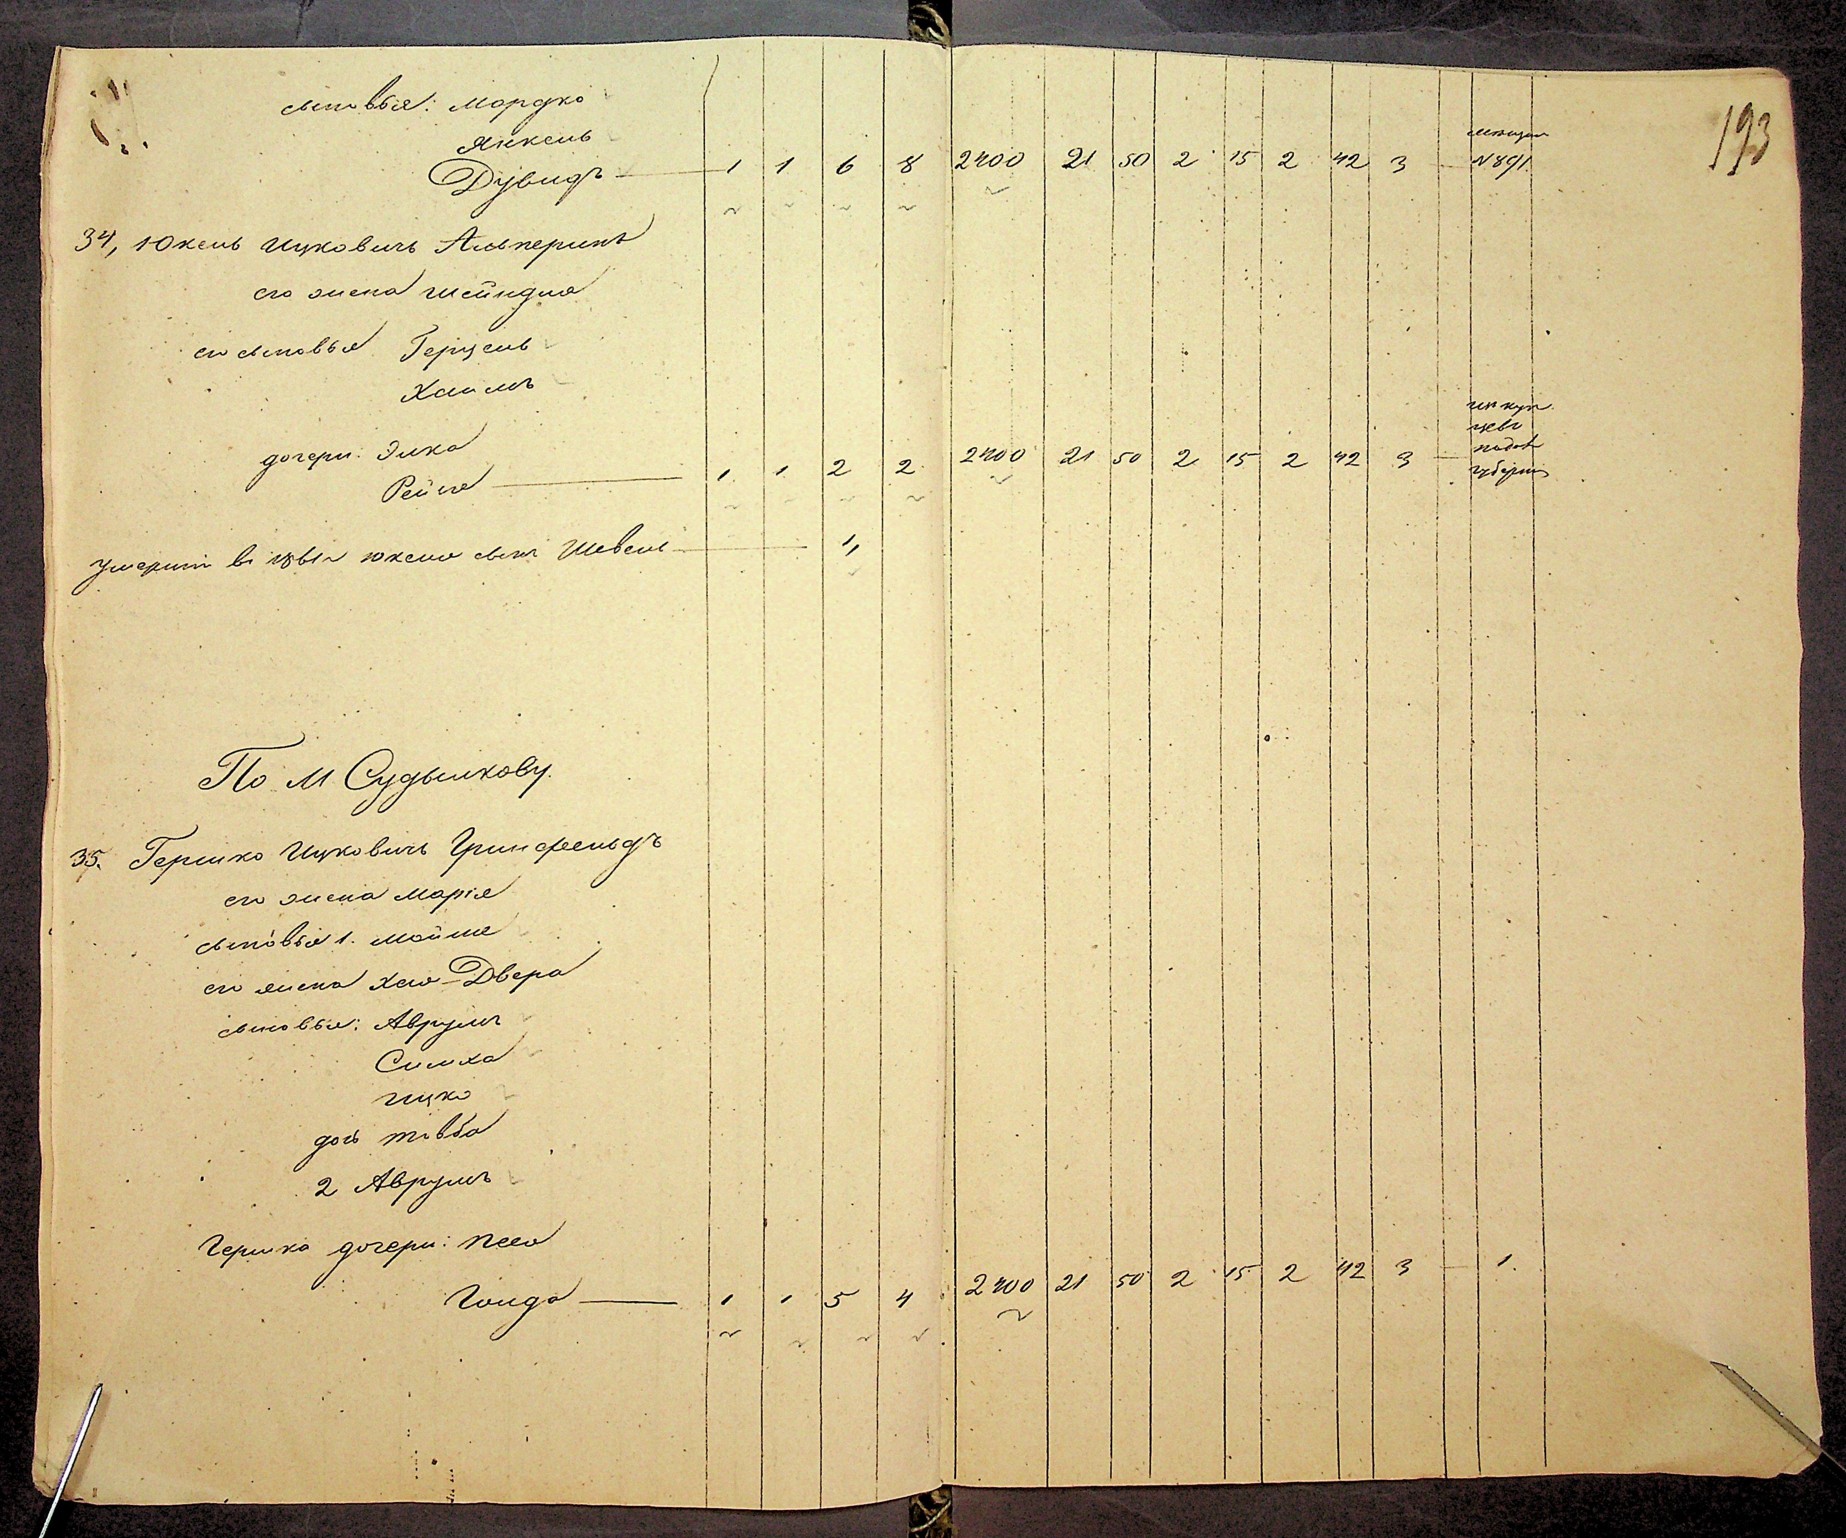 193
сыновья: Мордко
Янкель
мещан
Дувидъ — 1 1 6 8 2400 21 50 2 15 2 42 3 — №891.
34, Юкель Ицковичъ Альперинъ
его жена Шейндля
его сыновья Герцель
Хаимъ
дочери: Элка
Рейзя — 1 1 2 2 2400 21 50 2 15 2 42 3 —
губерніи
Умершій въ юкеля сынъ Шевель — 1,
По М Судылкову.
35. Гершко Ицковичъ Гринфельдъ
его жена Марія
сыновья 1. Мойше
его жена Хая-Двера
сыновья: Аврумъ
Симха
Ицко
дочь Товба
2 Аврумъ
Гершка дочери: Песя
Голда — 1 1 5 4 2400 21 50 2 15 2 42 3 — 1.